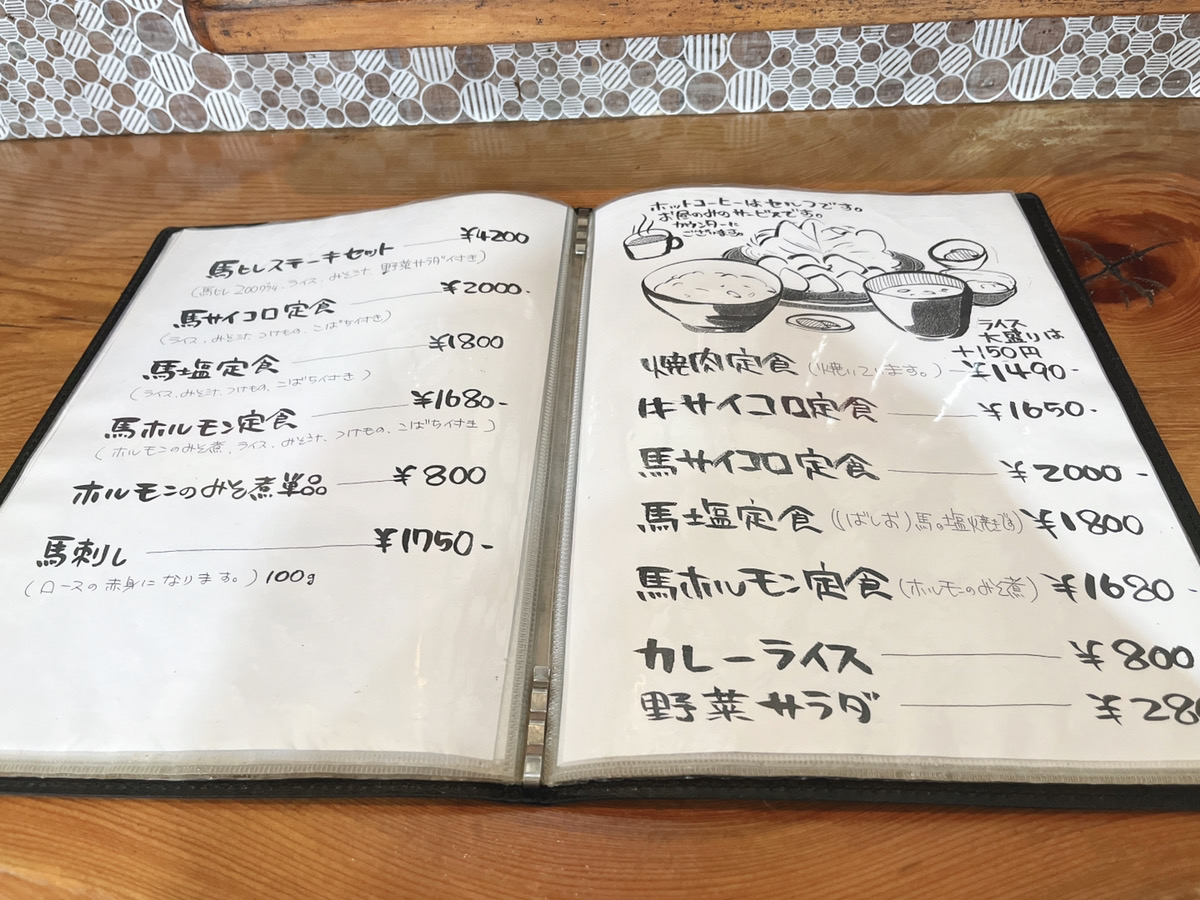 馬ヒレステーキセット ¥4200
(馬ヒレ200グラム、ライス、みそ汁、野菜サラダ付き)
馬サイコロ定食 ¥2000-
(ライス、みそ汁、つけもの、こばち付き)
馬塩定食 ¥1800
(ライス、みそ汁、つけもの、こばち付き)
馬ホルモン定食 ¥1680-
(ホルモンのみそ煮、ライス、みそ汁、つけもの、こばち付き)
ホルモンのみそ煮単品 ¥800
馬刺し ¥1750-
(ロースの赤身になります。)100g
ホットコーヒーはセルフです。
お昼のみのサービスです。
カウンターに
ございます。
ライス
大盛りは
+150円
焼肉定食(焼いています。) ¥1490-
牛サイコロ定食 ¥1650-
馬サイコロ定食 ¥2000-
馬塩定食((ばしお)馬の塩焼きです) ¥1800
馬ホルモン定食(ホルモンのみそ煮) ¥1680-
カレーライス ¥800
野菜サラダ ¥280